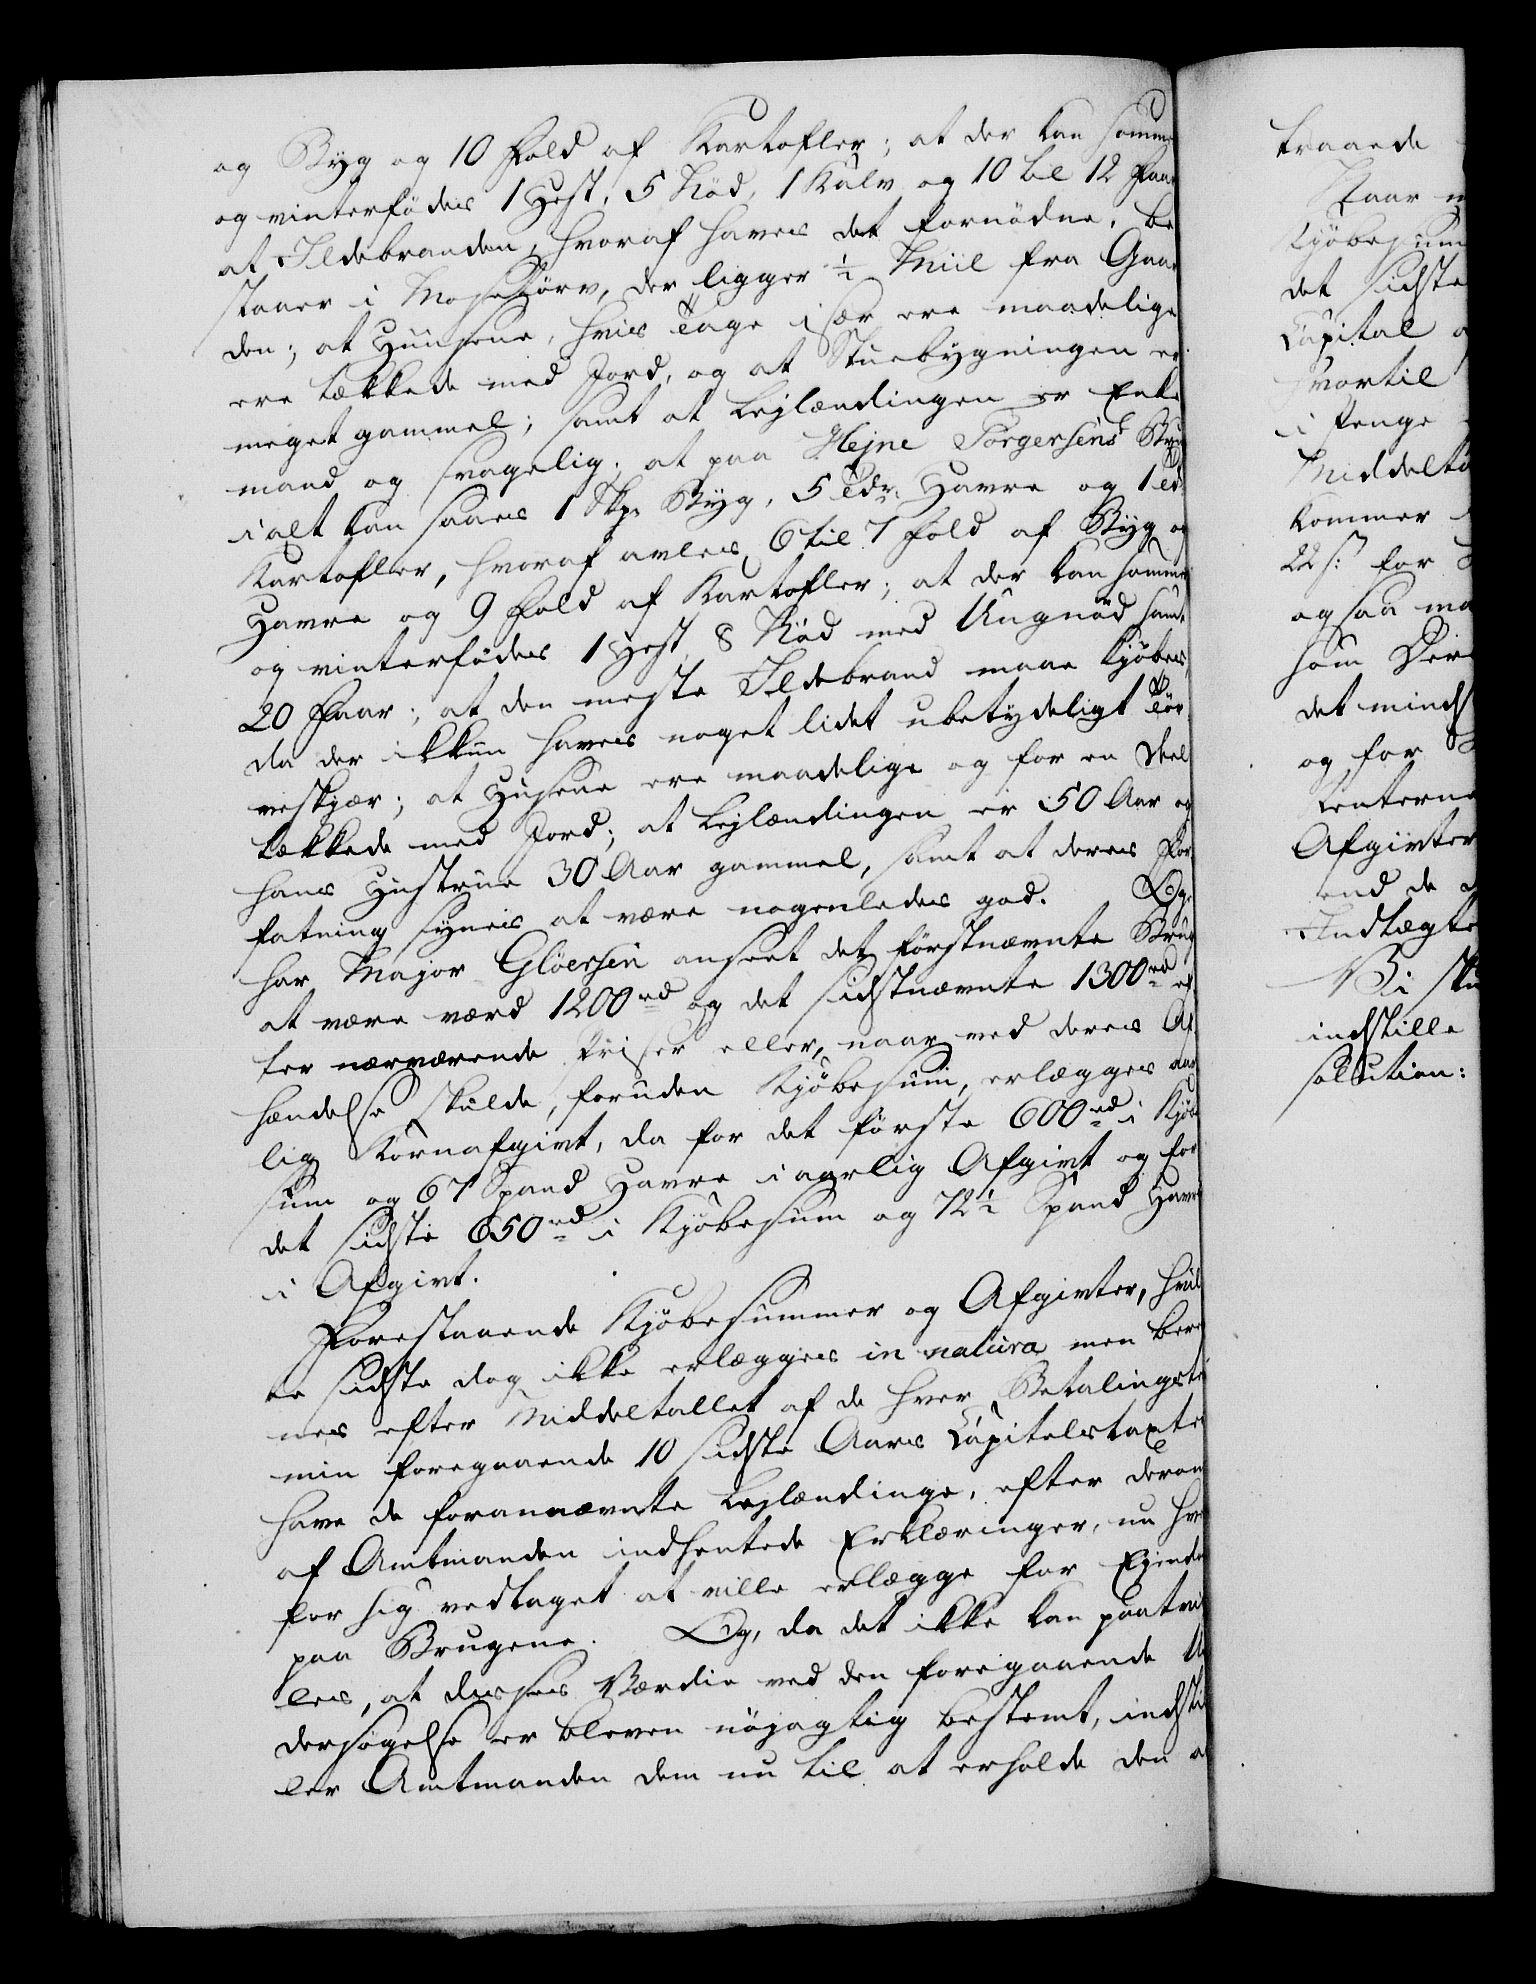 og Byg og 10 Fold af Kartofler; at der kan somme
og vinterfödes 1 Hest, 5 Nöd, 1 Kalv og 10 til 12 Faar
at Ildebranden, hvoraf haves det fornödne, be
staaer i Mosetörv, der ligger ½ Miil fra Gaar
den; at Huusene, hvis Tage især ere maadelige
ere tækkede med Jord, og at Stuebygningen er
meget gammel; samt at Lejlændingen er Enke
mand og svagelig; at paa Hejne Torgersens Brug
i alt kan saaes 1 Skp. Byg, 5 Tdr. Havre og 1 Td.
Kartofler, hvoraf avles 6 til 7 Fold af Byg og
Havre og 9 Fold af Kartofler; at der kan somme
og vinterfödes 1 Hest, 8 Nöd med Ungnöd samt
20 Faar; at den meste Ildebrand maae kjöbes,
da der ikkun haves noget lidet ubetydeligt Tör-
veskjær; at Husene ere maadelige og for en Deel
tækkede med Jord; at Lejlændingen er 50 Aar og
hans Hustrue 30 Aar gammel, samt at deres For
fatning synes at være nogenledes god. Og
har Major Glöersen anseet det förstnævnte Brug
at være værd 1200 rd og det sidstnævnte 1300 rd ef
ter nærværende Priser eller, naar ved deres Af
hændelse skulde, foruden Kjöbesum, erlægges aar
lig Kornafgivt, da for det förste 600 rd i Kjöbe
sum og 67 Spand Havre i aarlig Afgivt og for
det sidste 650 rd i Kjöbesum og 72½ Spand Havre
i Afgivt.
Forestaaende Kjöbesummer og Afgivter, hvil
ke sidste dog ikke erlægges in natura men bereg
nes efter Middeltallet af de hver Betalingster
min foregaaende 10 sidste Aars Capitelstaxter
have de forannævnte Lejlændinge, efter derom
af Amtmanden indhentede Erklæringer, nu hver
for sig vedtaget at ville erlægge for Ejendom
paa Brugene. Og, da det ikke kan paatviv
les, at disses Værdie ved den foregaaende Un
dersögelse er bleven nöjagtig bestemt, indstil
ler Amtmanden dem nu til at erholde den a
traaede
Naar m
Kjöbesum
det sidste
Capital o
hvortil
i Penge
Middelta
kommer
22 s: for
og saa ma
som Vær
det minds
og for
renterne
Afgivter
end de
Indtægte
Vi sku
indstille
solution: